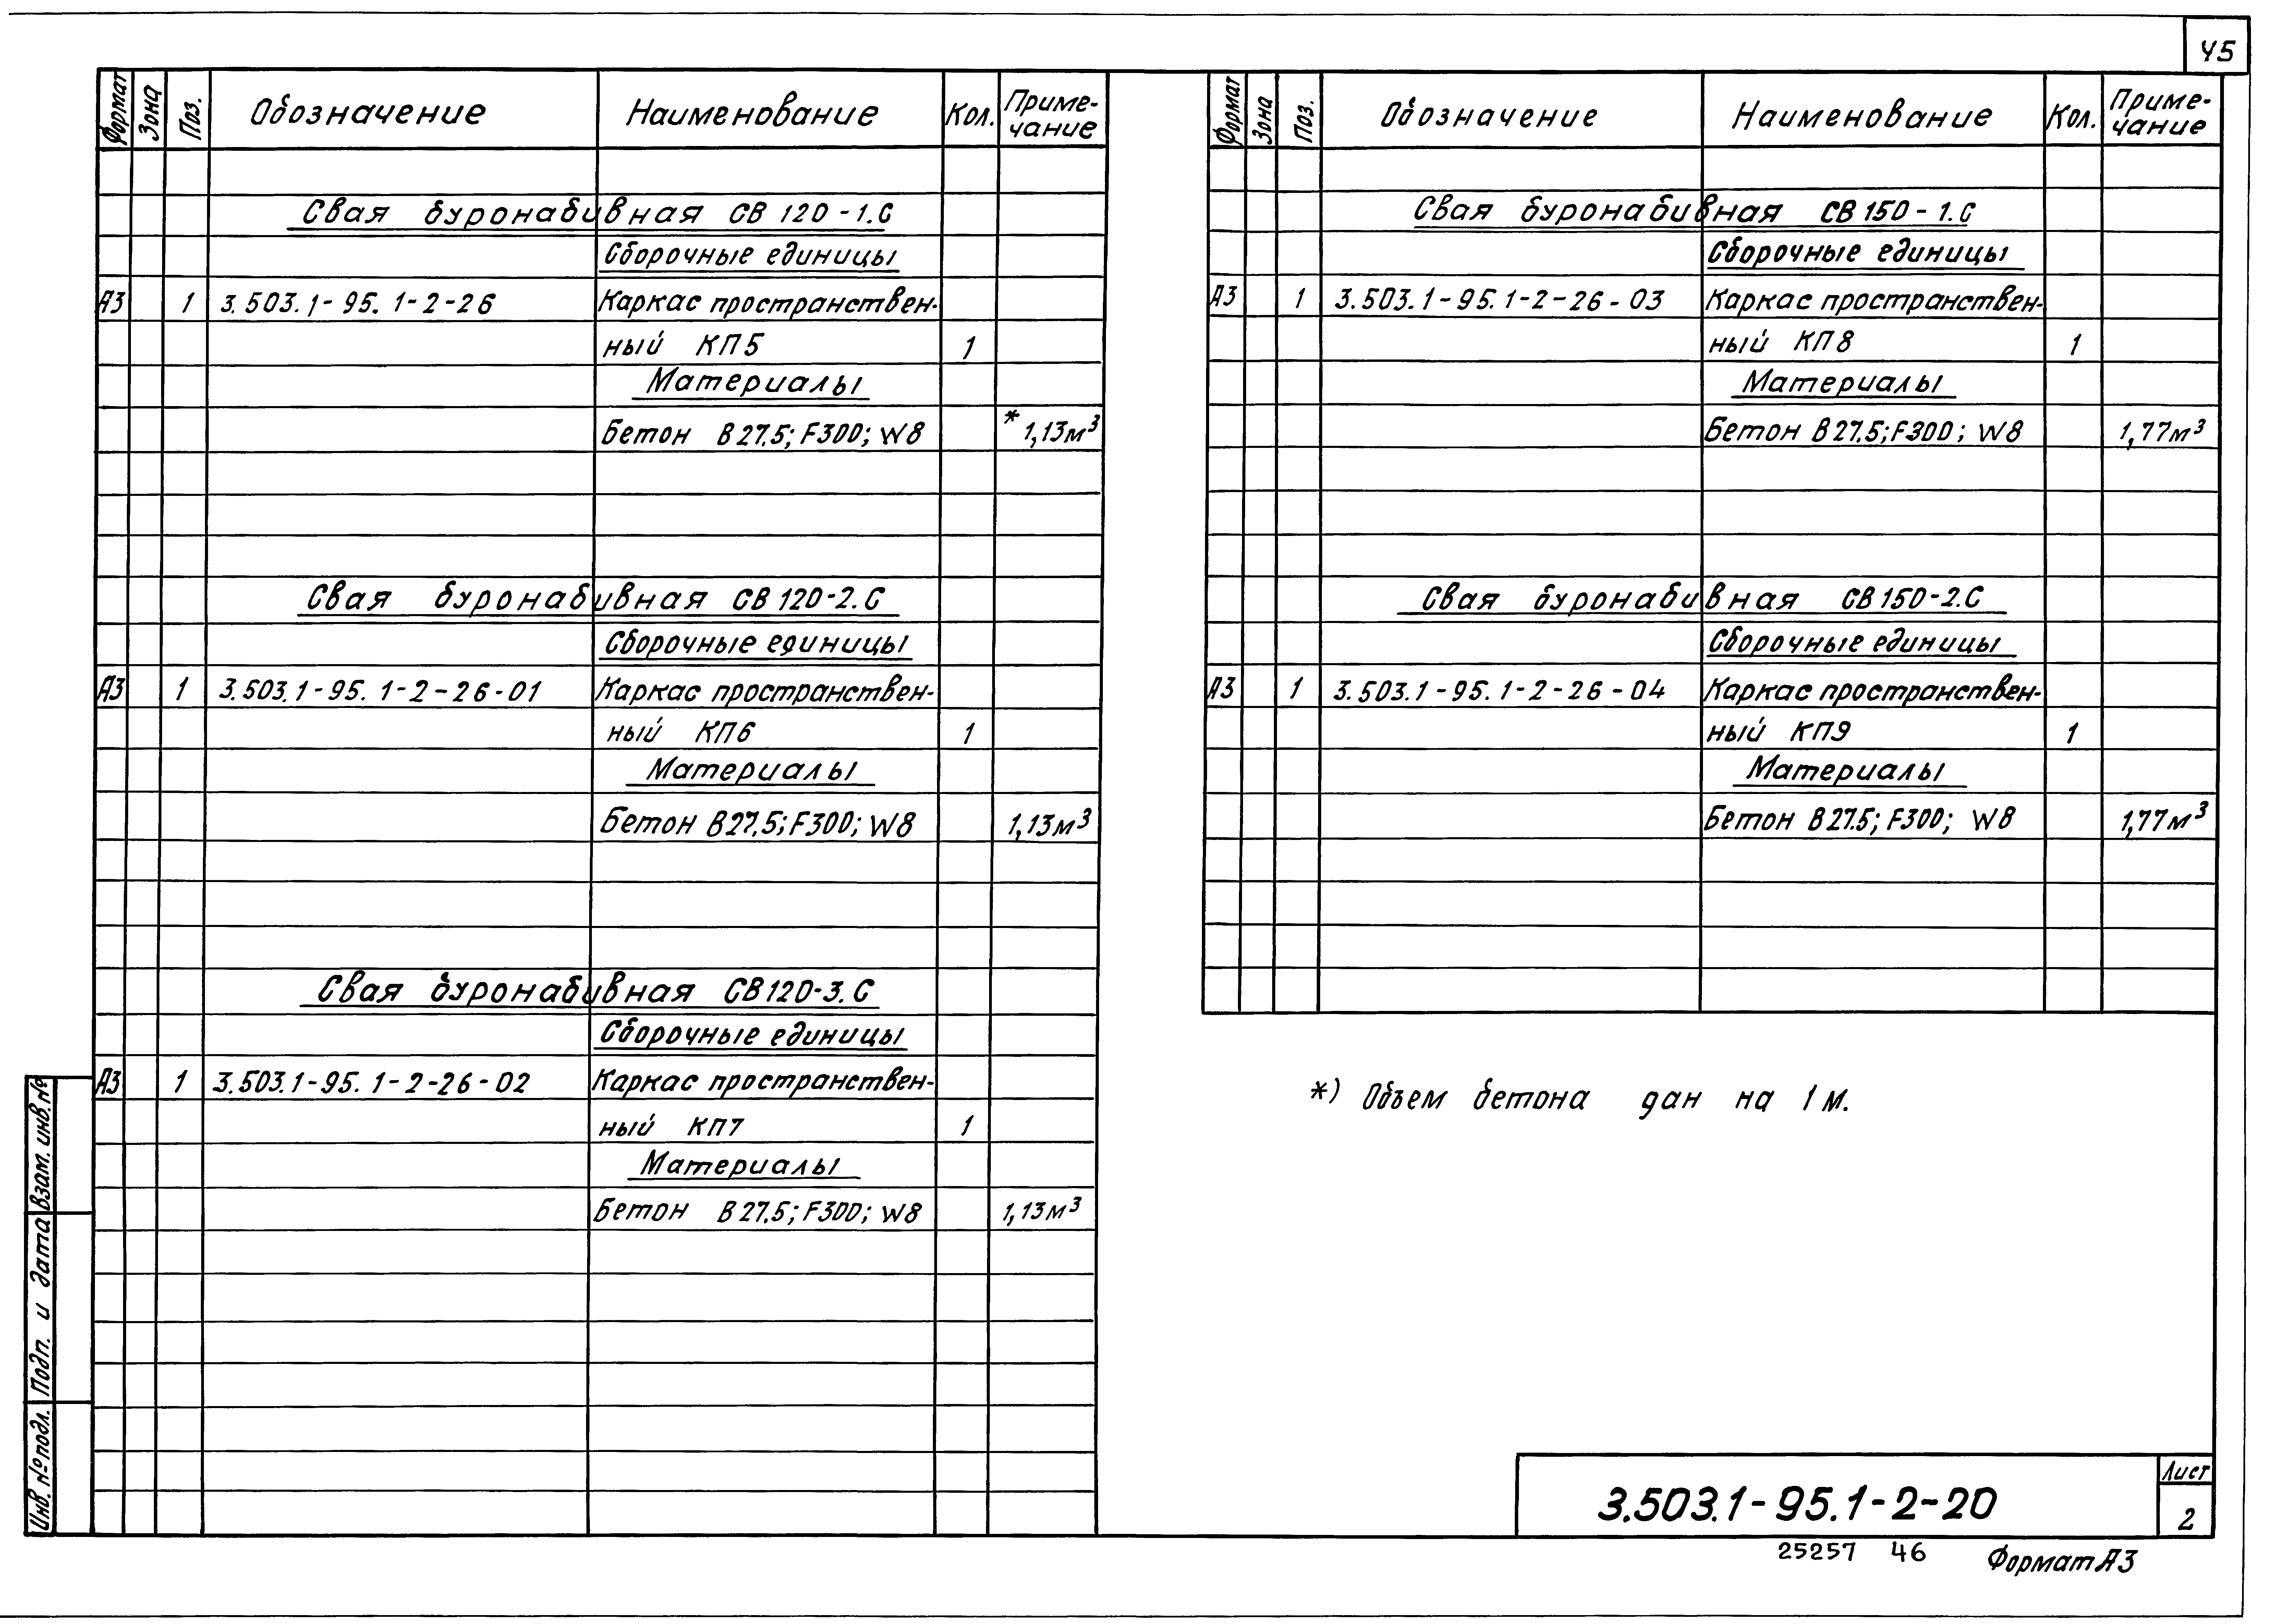 45
Формат Зона Поз. Обозначение Наименование Кол. Приме-
чание
Свая буронабивная СВ 120-1.С
Сборочные единицы
А3 1 3.503.1-95.1-2-26 Каркас пространствен-
ный КП5 1
Материалы
Бетон В27,5; F300; W8 * 1,13м³
Свая буронабивная СВ 120-2.С
Сборочные единицы
А3 1 3.503.1-95.1-2-26-01 Каркас пространствен-
ный КП6 1
Материалы
Бетон В27,5; F300; W8 1,13м³
Свая буронабивная СВ 120-3.С
Сборочные единицы
А3 1 3.503.1-95.1-2-26-02 Каркас пространствен-
ный КП7 1
Материалы
Бетон В27,5; F300; W8 1,13м³
Формат Зона Поз. Обозначение Наименование Кол. Приме-
чание
Свая буронабивная СВ 150-1.С
Сборочные единицы
А3 1 3.503.1-95.1-2-26-03 Каркас пространствен-
ный КП8 1
Материалы
Бетон В27,5; F300; W8 1,77м³
Свая буронабивная СВ 150-2.С
Сборочные единицы
А3 1 3.503.1-95.1-2-26-04 Каркас пространствен-
ный КП9 1
Материалы
Бетон В27,5; F300; W8 1,77м³
*) Объем бетона дан на 1м.
Взам. инв. №
Подп. и дата
Инв. № подл.
3.503.1-95.1-2-20
Лист
2
25257 46 Формат А3